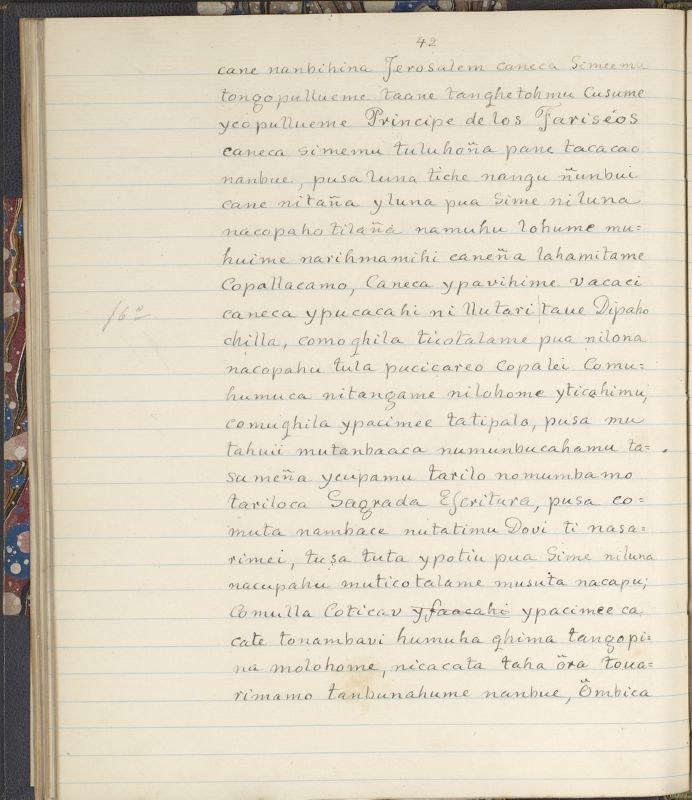 42
cane nanbihina Jerosalem caneca Simeemu
tongopullueme taane tanghetohmu Cusume
ycopullueme Principe de los Fariséos
caneca simemu tuluhoña pane tacacao
nanbue, pusa luna tiche nangu ñunbui
cane nitaña y luna pua Sime niluna
nacopaho tilaña namuhu lohume mu=
huime narihmamihi caneña lahamitame
Copallacamo, Caneca ypavihime vacaci
caneca ypucacahi ni llutari taue Dipaho
16ª
chilla, como ghila ticotalame pua nilona
nacopahu tula pucicareo copalei Comu=
humuca nitangame nilohome yticahimu,
comughila ypacimee tatipalo, pusa mu
tahuii mutanbaaca numunbucahamu ta=
sumeña ycupamu tarilo nomumbamo
tariloca Sagrada Escritura, pusa co=
muta nambace nutatimu Dovi ti nasa=
rimei, tusa tuta ypotiu pua Sime niluna
nacupahu muticotalame musuta nacapu;
Comulla Coticav yfaacahi ypacimee ca
cate tonambavi humuha ghima tangopi=
na molohome, nicacata taha öra toua=
rimamo tanbunahume nanbue, Ömbica